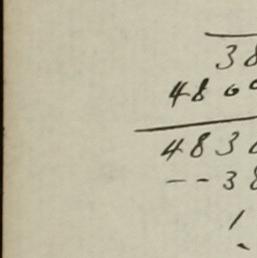 38
4800
4838
--38
1